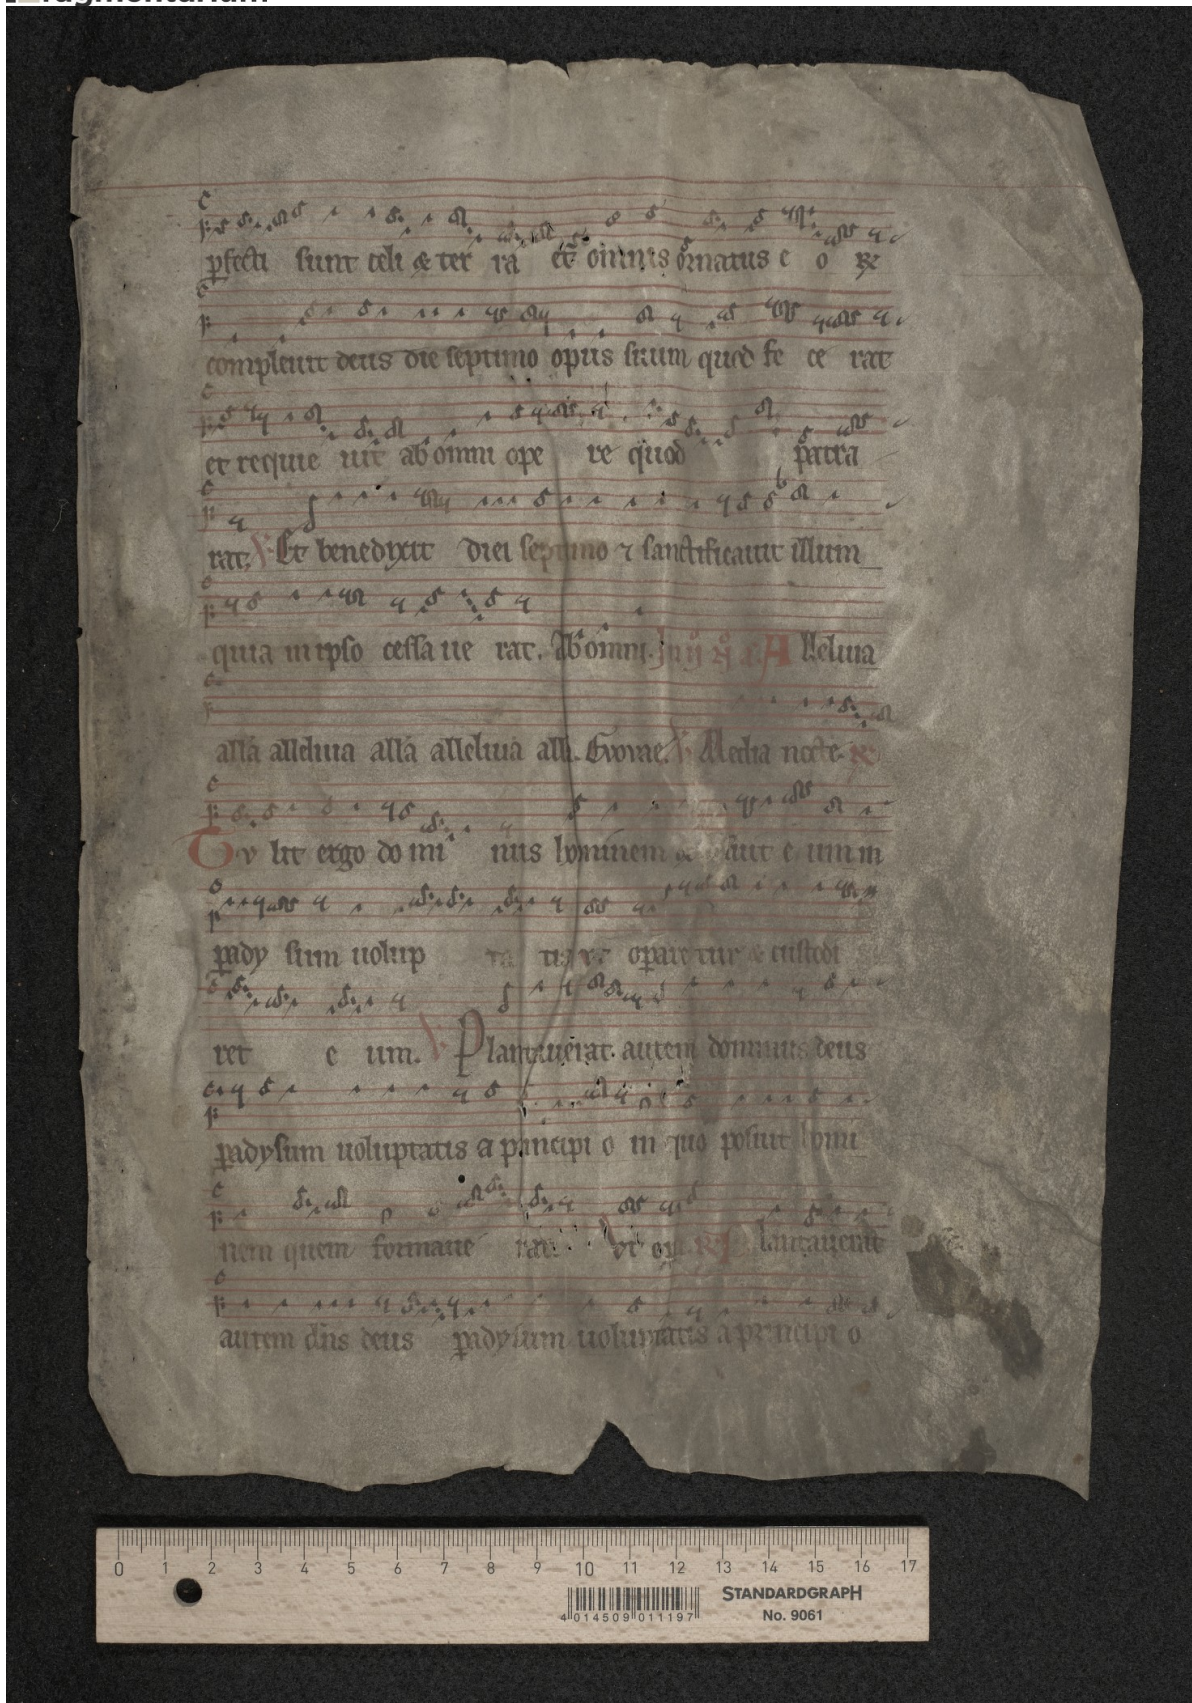 ragmentarium
ꝑfecti sunt celi & ter ra et om̅nis ornatus e o rꝫ
compleuit deus die septimo opus suum quod fe ce rat
et requie uit ab omni ope re quod patra
rat. Et benedixit diei septimo ⁊ sanctificauit illum
quia in ipso cessa ue rat. Ab omni. A lleluia
alla̅ alleluia alla̅ alleluia all. Euouae. Media nocte.
Tu lit ergo do mi nus hominem e um in
ꝑady sum uolup ta tis ut oꝑaretur & custodi
ret e um. Plantauerat. autem dominus deus
ꝑadysum uoluptatis a principi o in quo posuit homi
nem quem formaue rat. Vt op. lantauerat
autem dn̅s deus ꝑadysum uoluptatis a principi o
0 1 2 3 4 5 6 7 8 9 10 11 12 13 14 15 16 17
4 014509 011197
STANDARDGRAPH
No. 9061